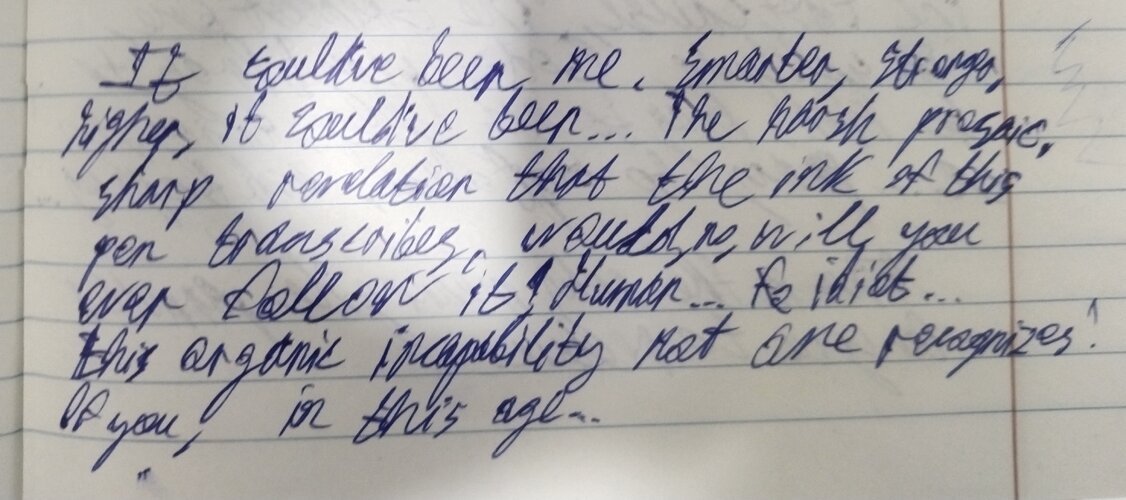 It could've been me. Smarter, stronger,
higher, it could've been... The harsh prosaic,
sharp revelation that the ink of this
pen transcribes, would, no, will you
ever follow it? Human... To idiot...
this organic incapability not one recognizes!
Of you, in this age...